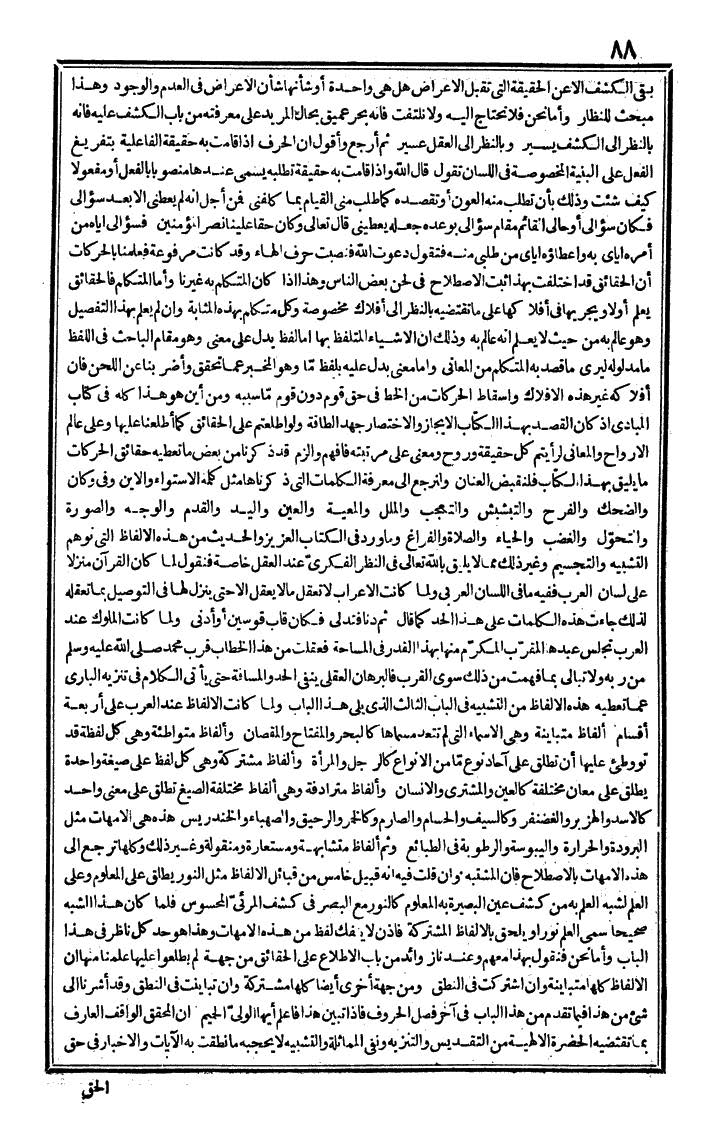 ٨٨
بقى الكشف الاعن الحقيقة التى تقبل الاعراض هل هى واحدة أوشأنها شأن الاعراض فى العدم والوجود وهذا
مبحث للنظار وأمانحن فلا نحتاج اليه ولا نلتفت فانه بحر عميق يحال المريد على معرفته من باب الكشف عليه فانه
بالنظر الى الكشف يسير وبالنظر الى العقل عسير ثم أرجع وأقول ان الحرف اذا قامت به حقيقة الفاعلية بتفريغ
الفعل على البنية المخصوصة فى اللسان تقول قال الله واذا قامت به حقيقة تطلبه يسمى عندها منصوبا بالفعل أو مفعولا
كيف شئت وذلك بأن تطلب منه العون أو تقصده كما طلب منى القيام بما كلفنى فمن أجل انه لم يعطنى الا بعد سؤالى
فكان سؤالى أوحالى القائم مقام سؤالى بوعده جعله يعطينى قال تعالى وكان حقا علينا نصر المؤمنين فسؤالى اياه من
أمره اياى به واعطاؤه اياى من طلبى منه فتقول دعوت الله فنصبت حرف الهاء وقد كانت مرفوعة فعلمنا بالحركات
أن الحقائق قد اختلفت بهذا ثبت الاصطلاح فى لحن بعض الناس وهذا اذا كان المتكلم به غيرنا وأما المتكلم فالحقائق
يعلم أولا ويجريها فى أفلاكها على ما تقتضيه بالنظر الى أفلاك مخصوصة وكل متكلم بهذه المثابة وان لم يعلم بهذا التفصيل
وهو عالم به من حيث لا يعلم انه عالم به وذلك ان الاشياء المتلفظ بها اما لفظ يدل على معنى وهو مقام الباحث فى اللفظ
ما مدلوله ليرى ما قصد به المتكلم من المعانى واما معنى يدل عليه بلفظ مّا وهو المخبر عما تحقق وأضربنا عن اللحن فان
أفلاكه غير هذه الافلاك واسقاط الحركات من الخط فى حق قوم دون قوم ما سببه ومن أين هو هذا كله فى كتاب
المبادى اذ كان القصد بهذا الكتاب الايجاز والاختصار جهد الطاقة ولو اطلعتم على الحقائق كما أطلعنا عليها وعلى عالم
الارواح والمعانى لرأيتم كل حقيقة وروح ومعنى على مرتبته فافهم والزم قد ذكرنا من بعض ما تعطيه حقائق الحركات
ما يليق بهذا الكتاب فلنقبض العنان ولنرجع الى معرفة الكلمات التى ذكرناها مثل كلمة الاستواء والاين وفى وكان
والضحك والفرح والتبشبش والتعجب والملل والمعية والعين واليد والقدم والوجه والصورة
والتحوّل والغضب والحياء والصلاة والفراغ وما ورد فى الكتاب العزيز والحديث من هذه الالفاظ التى توهم
التشبيه والتجسيم وغير ذلك مما لا يليق بالله تعالى فى النظر الفكرىّ عند العقل خاصة فنقول لما كان القرآن منزلا
على لسان العرب ففيه ما فى اللسان العربى ولما كانت الاعراب لا تعقل ما لا يعقل الاحتى ينزل لها فى التوصيل بما تعقله
لذلك جاءت هذه الكلمات على هذا الحد كما قال ثم دنا فتدلى فكان قاب قوسين أو أدنى ولما كانت الملوك عند
العرب تجلس عبدها المقرّب المكرّم منها بهذا القدر فى المساحة فعقلت من هذا الخطاب قرب محمد صلى الله عليه وسلم
من ربه ولا تبالى بما فهمت من ذلك سوى القرب فالبرهان العقلى ينفى الحد والمسافة حتى يأتى الكلام فى تنزيه البارى
عما تعطيه هذه الالفاظ من التشبيه فى الباب الثالث الذى يلى هذا الباب ولما كانت الالفاظ عند العرب على أربعة
أقسام ألفاظ متباينة وهى الاسماء التى لم تتعد مسماها كالبحر والمفتاح والمقصان وألفاظ متواطئة وهى كل لفظة قد
تووطئ عليها أن تطلق على آحاد نوع مّا من الانواع كالرجل والمرأة وألفاظ مشتركة وهى كل لفظ على صيغة واحدة
يطلق على معان مختلفة كالعين والمشترى والانسان وألفاظ مترادفة وهى ألفاظ مختلفة الصيغ تطلق على معنى واحد
كالاسد والهزبر والغضنفر وكالسيف والحسام والصارم وكالخمر والرحيق والصهباء والخندريس هذه هى الامهات مثل
البرودة والحرارة واليبوسة والرطوبة فى الطبائع وثم ألفاظ متشابهة ومستعارة ومنقولة وغير ذلك وكلها ترجع الى
هذه الامهات بالاصطلاح فان المشتبه وان قلت فيه انه قبيل خامس من قبائل الالفاظ مثل النور يطلق على المعلوم وعلى
العلم لشبه العلم به من كشف عين البصيرة به المعلوم كالنور مع البصر فى كشف المرئىّ المحسوس فلما كان هذا الشبه
صحيحا سمى العلم نورا ويلحق بالالفاظ المشتركة فاذن لا ينفك لفظ من هذه الامهات وهذا هو حد كل ناظر فى هذا
الباب وأما نحن فنقول بهذا معهم وعندنا زوائد من باب الاطلاع على الحقائق من جهة لم يطلعوا عليها علمنا منها ان
الالفاظ كلها متباينة وان اشتركت فى النطق ومن جهة أخرى أيضا كلها مشتركة وان تباينت فى النطق وقد أشرنا الى
شئ من هذا فيما تقدم من هذا الباب فى آخر فصل الحروف فاذا تبين هذا فاعلم أيها الولىّ الحميم ان المحقق الواقف العارف
بما تقتضيه الحضرة الالهية من التقديس والتنزيه ونفى المماثلة والتشبيه لا يحجبه ما نطقت به الآيات والاخبار فى حق
الحق